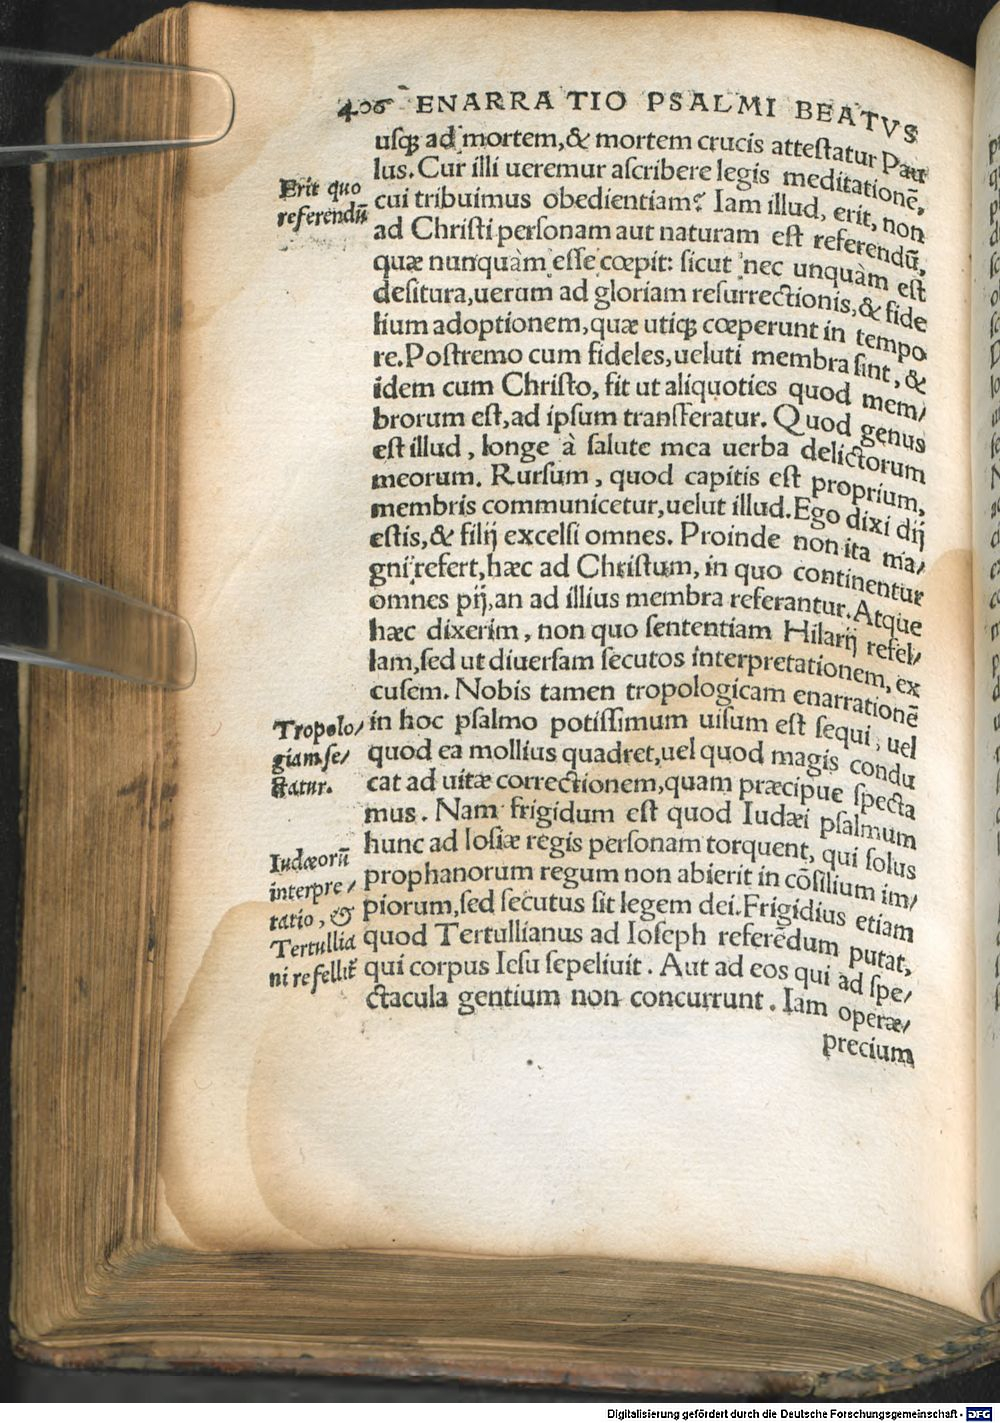 406 ENARRATIO PSALMI BEATVS
usq; ad mortem, & mortem crucis attestatur Pau
lus. Cur illi ueremur ascribere legis meditationē,
Erit quo
referendū
cui tribuimus obedientiam? Iam illud, erit, non
ad Christi personam aut naturam est referendū,
quæ nunquàm esse cœpit: sicut nec unquàm est
desitura, uerum ad gloriam resurrectionis, & fide
lium adoptionem, quæ utiq; cœperunt in tempo
re. Postremo cum fideles, ueluti membra sint, &
idem cum Christo, fit ut aliquoties quod mem/
brorum est, ad ipsum transferatur. Quod genus
est illud, longe à salute mea uerba delictorum
meorum. Rursum, quod capitis est proprium,
membris communicetur, uelut illud. Ego dixi dij
estis, & filij excelsi omnes. Proinde non ita ma/
gni refert, hæc ad Christum, in quo continentur
omnes pij, an ad illius membra referantur. Atque
hæc dixerim, non quo sententiam Hilarij refel/
lam, sed ut diuersam secutos interpretationem, ex
cusem. Nobis tamen tropologicam enarrationē
Tropolo/
giam se/
ctatur.
in hoc psalmo potissimum uisum est sequi, uel
quod ea mollius quadret, uel quod magis condu
cat ad uitæ correctionem, quam præcipue specta
mus. Nam frigidum est quod Iudæi psalmum
hunc ad Iosiæ regis personam torquent, qui solus
Iudæorū
interpre/
tatio, &
Tertullia
ni refellit̃
prophanorum regum non abierit in cōsilium im/
piorum, sed secutus sit legem dei. Frigidius etiam
quod Tertullianus ad Ioseph referēdum putat,
qui corpus Iesu sepeliuit. Aut ad eos qui ad spe/
ctacula gentium non concurrunt. Iam operæ/
precium
Digitalisierung gefördert durch die Deutsche Forschungsgemeinschaft - DFG